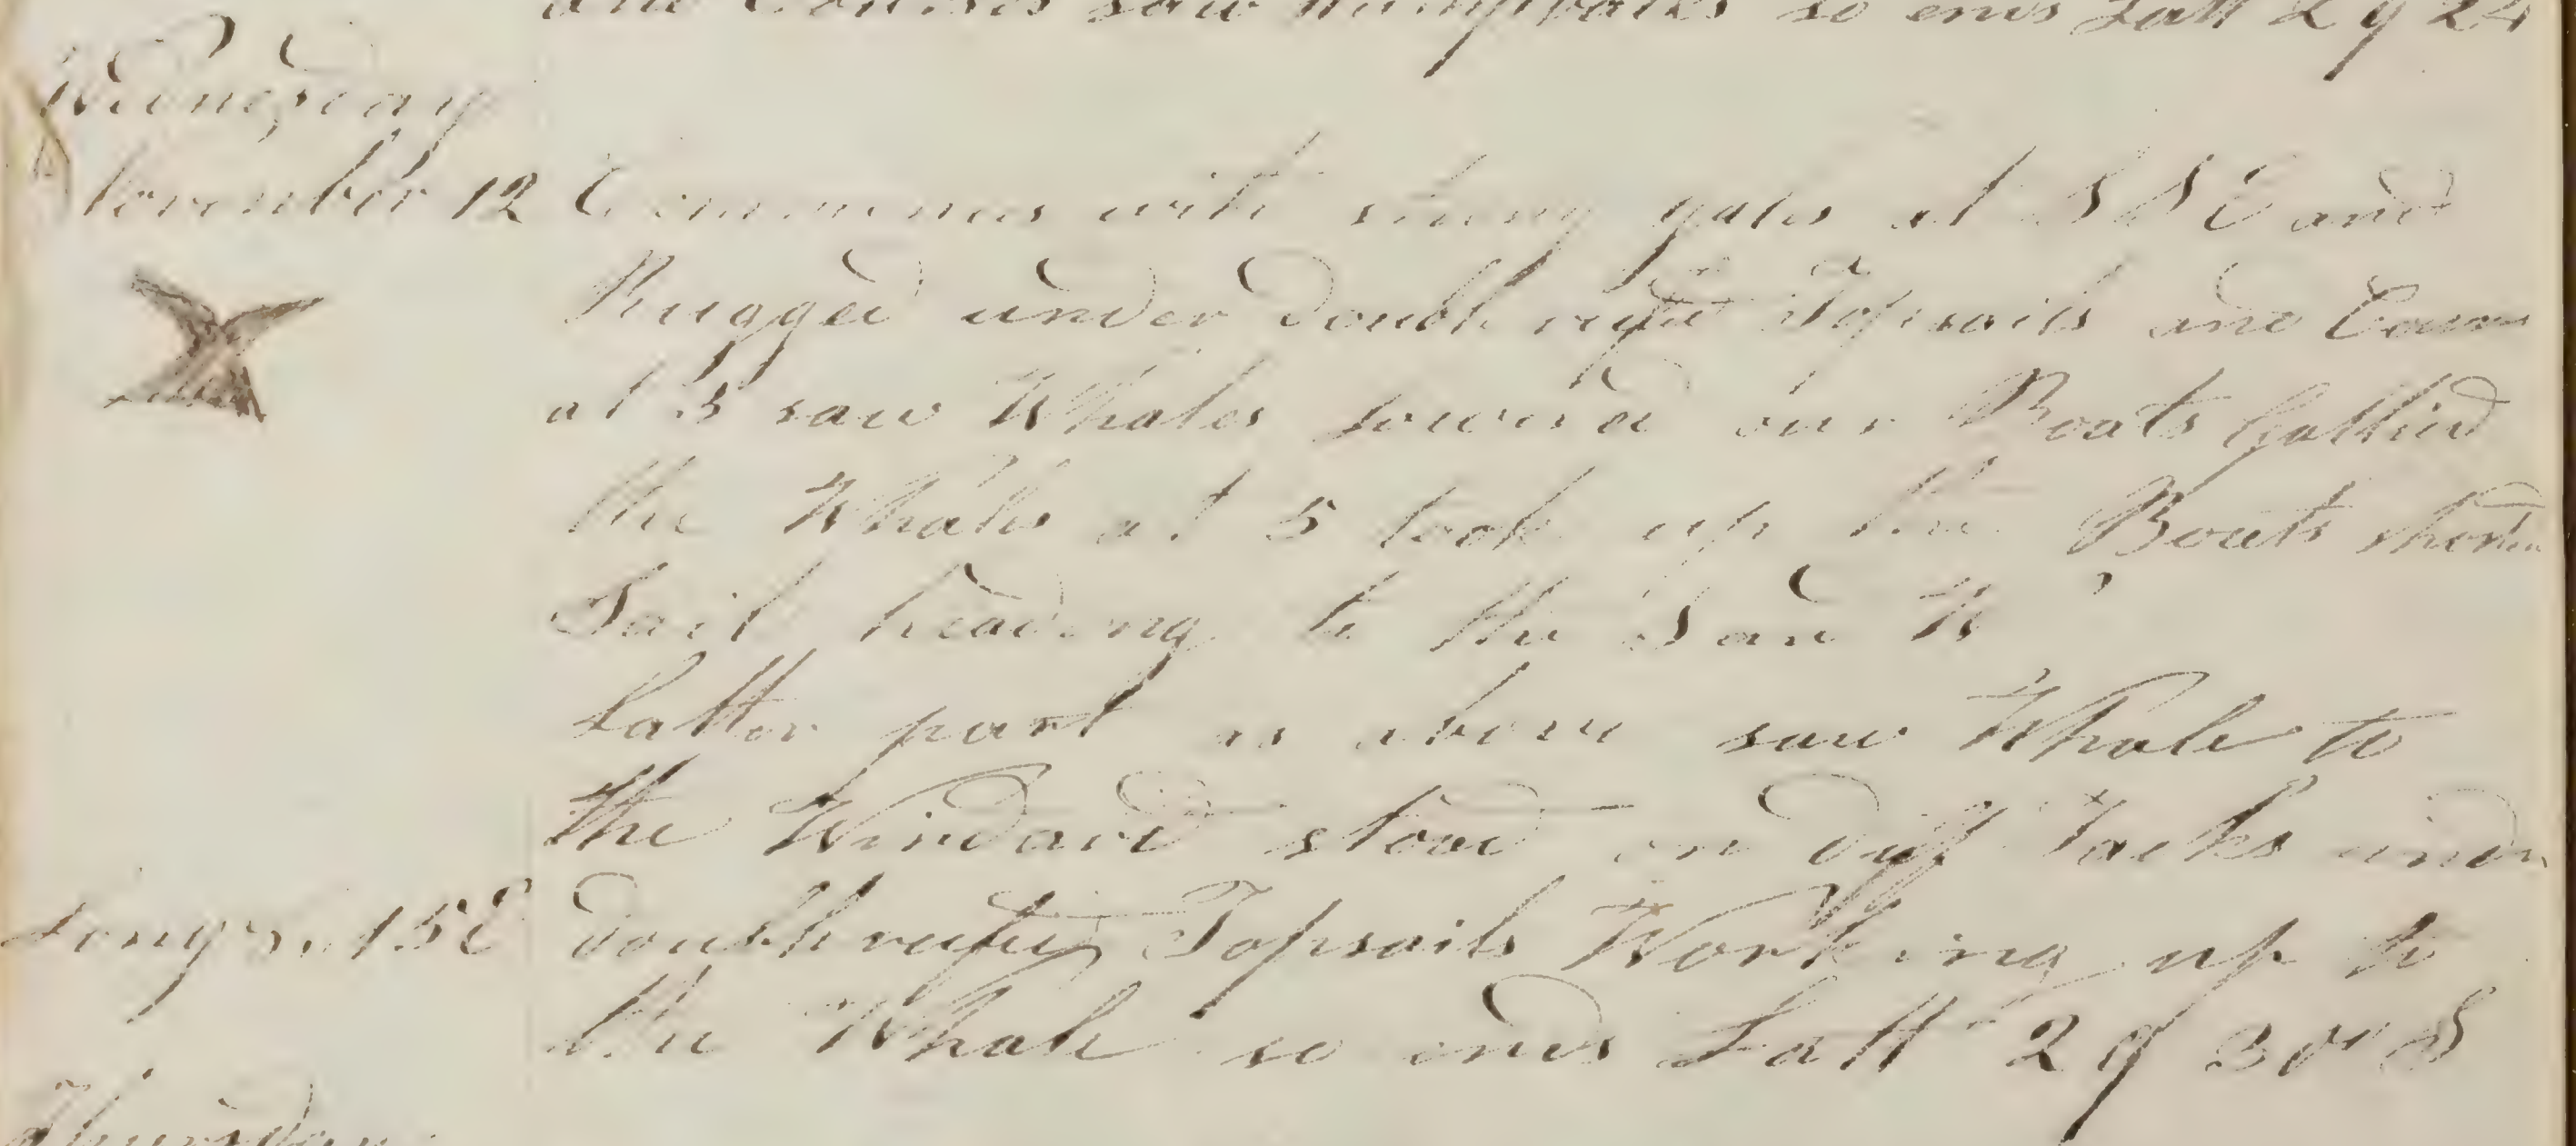 and Courses saw humpbacks so ends Latt 29 24
Wednesday
November 12 Commences with strong gales at S S E and
Rugged under double reefed Topsails and Courses
at 3 saw Whales lowered our Boats Gallied
the Whales at 5 took up the Boats shorten
Sail heading to the S and W
Latter part as above saw Whale to
the Windard stood on diff Tacks under
Longn 15 E double reefed Topsails Working up to
the Whale so ends Latt 29 30 S
Thursday